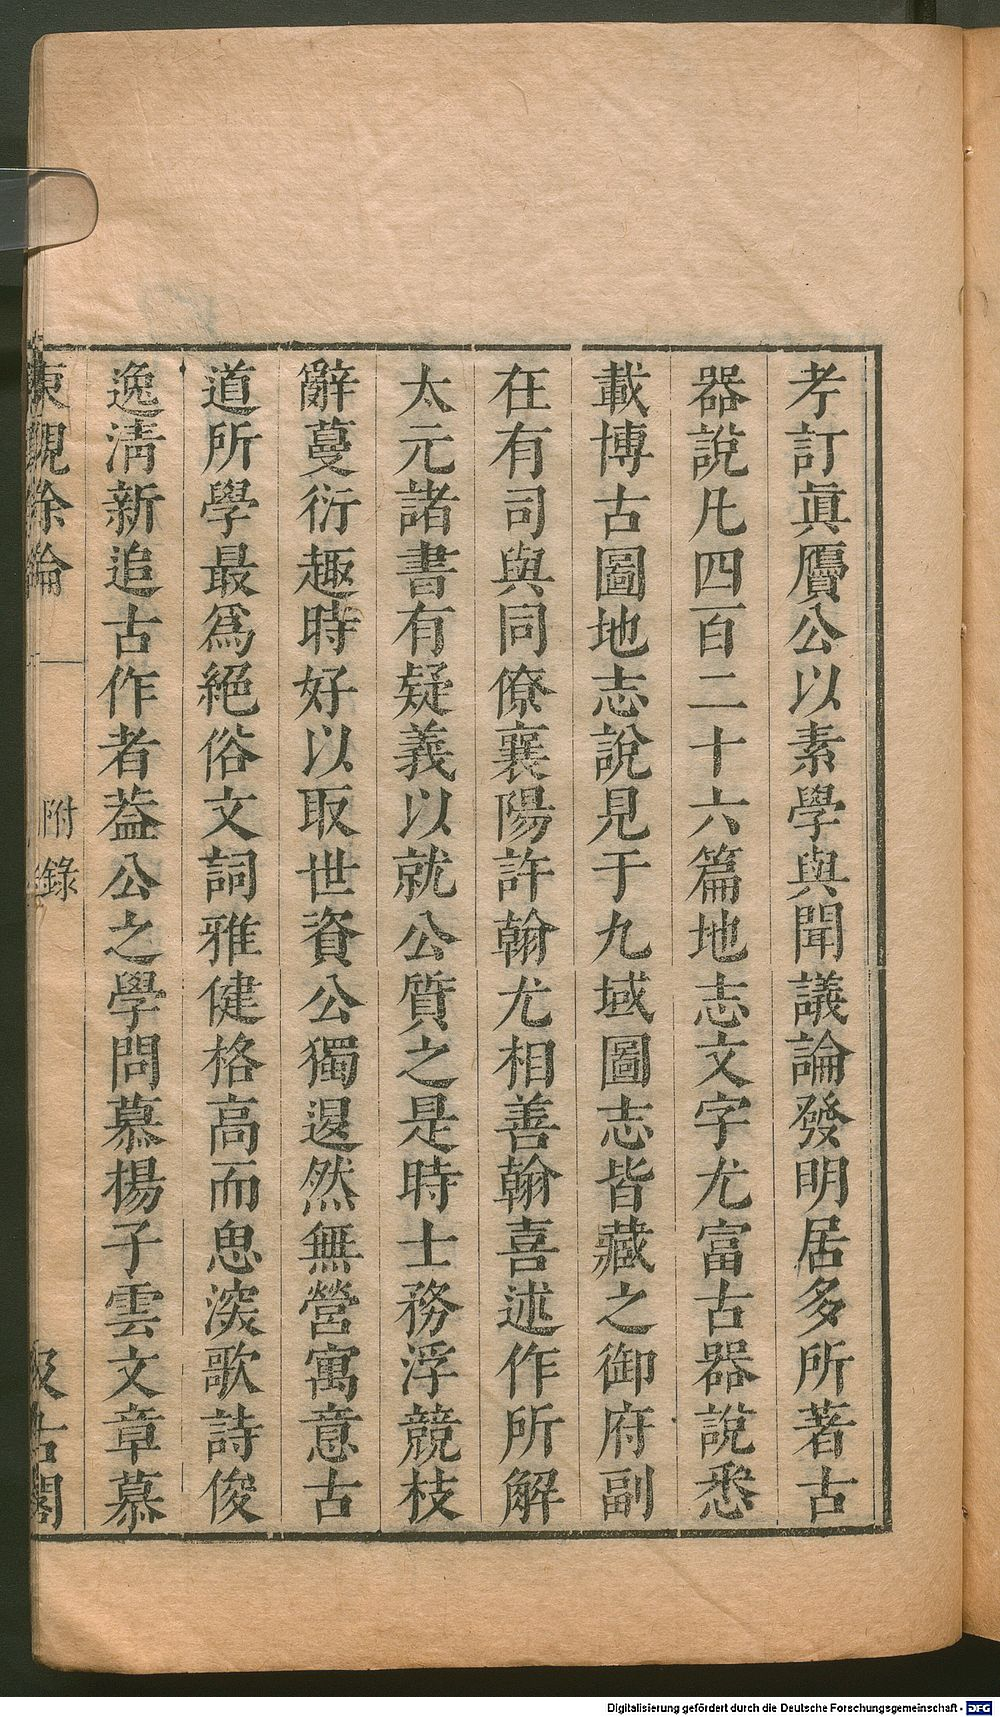 考訂眞贋公以素學與聞議論發明居多所著古
器說凡四百二十六篇地志文字尤富古器說悉
載博古圖地志說見于九域圖志皆藏之御府副
在有司與同僚襄陽許翰尤相善翰喜述作所解
太元諸書有疑義以就公質之是時士務浮競枝
辭蔓衍趣時好以取世資公獨逷然無營寓意古
道所學最爲絕俗文詞雅健格高而思深歌詩俊
逸淸新追古作者葢公之學問慕楊子雲文章慕
東觀餘論
附錄
汲古閣
Digitalisierung gefördert durch die Deutsche Forschungsgemeinschaft - DFG